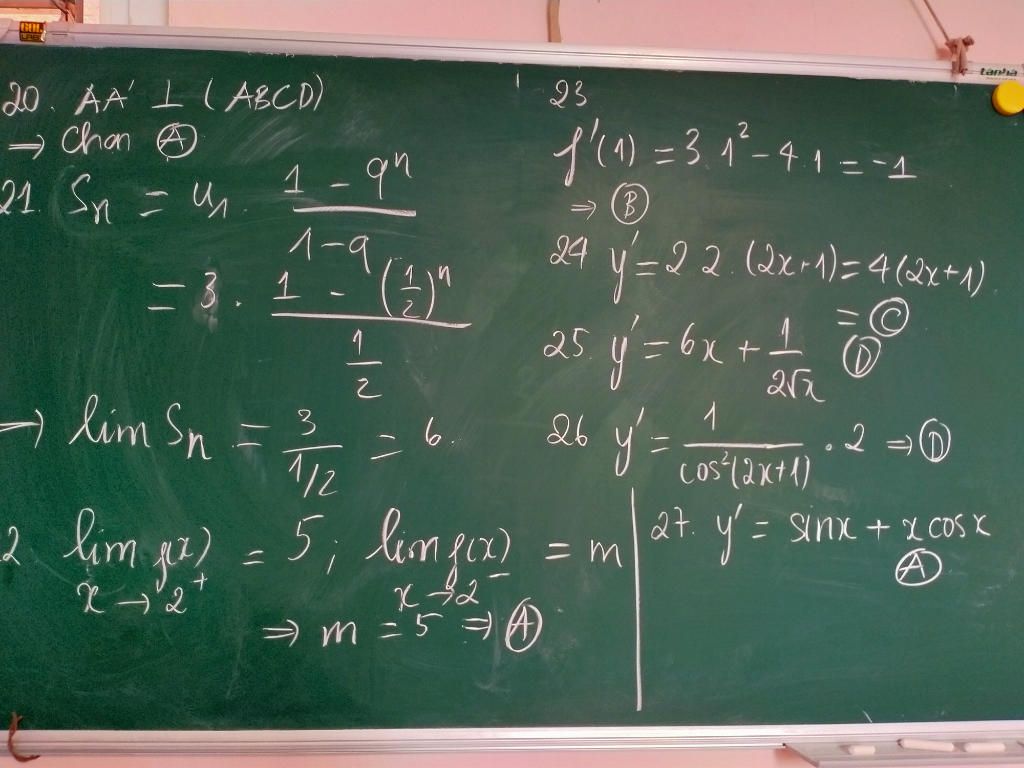 20. AA' ⊥ (ABCD)
⇒ Chọn Ⓐ
21. Sn = u1. (1 - q^n)/(1 - q)
= 3 . (1 - (1/2)^n)/(1/2)
→ lim Sn = 3/(1/2) = 6.
2 lim f(x) = 5 ; lim f(x) = m
x → 2+ x → 2-
⇒ m = 5 ⇒ Ⓐ
23
f'(1) = 3.1² - 4.1 = -1
⇒ Ⓑ
24 y' = 2 2.(2x+1) = 4(2x+1)
= Ⓒ
25. y' = 6x + 1/(2√x) Ⓓ
26 y' = 1/(cos²(2x+1)) . 2 ⇒ Ⓓ
27. y' = sinx + x cosx
Ⓐ
tanha